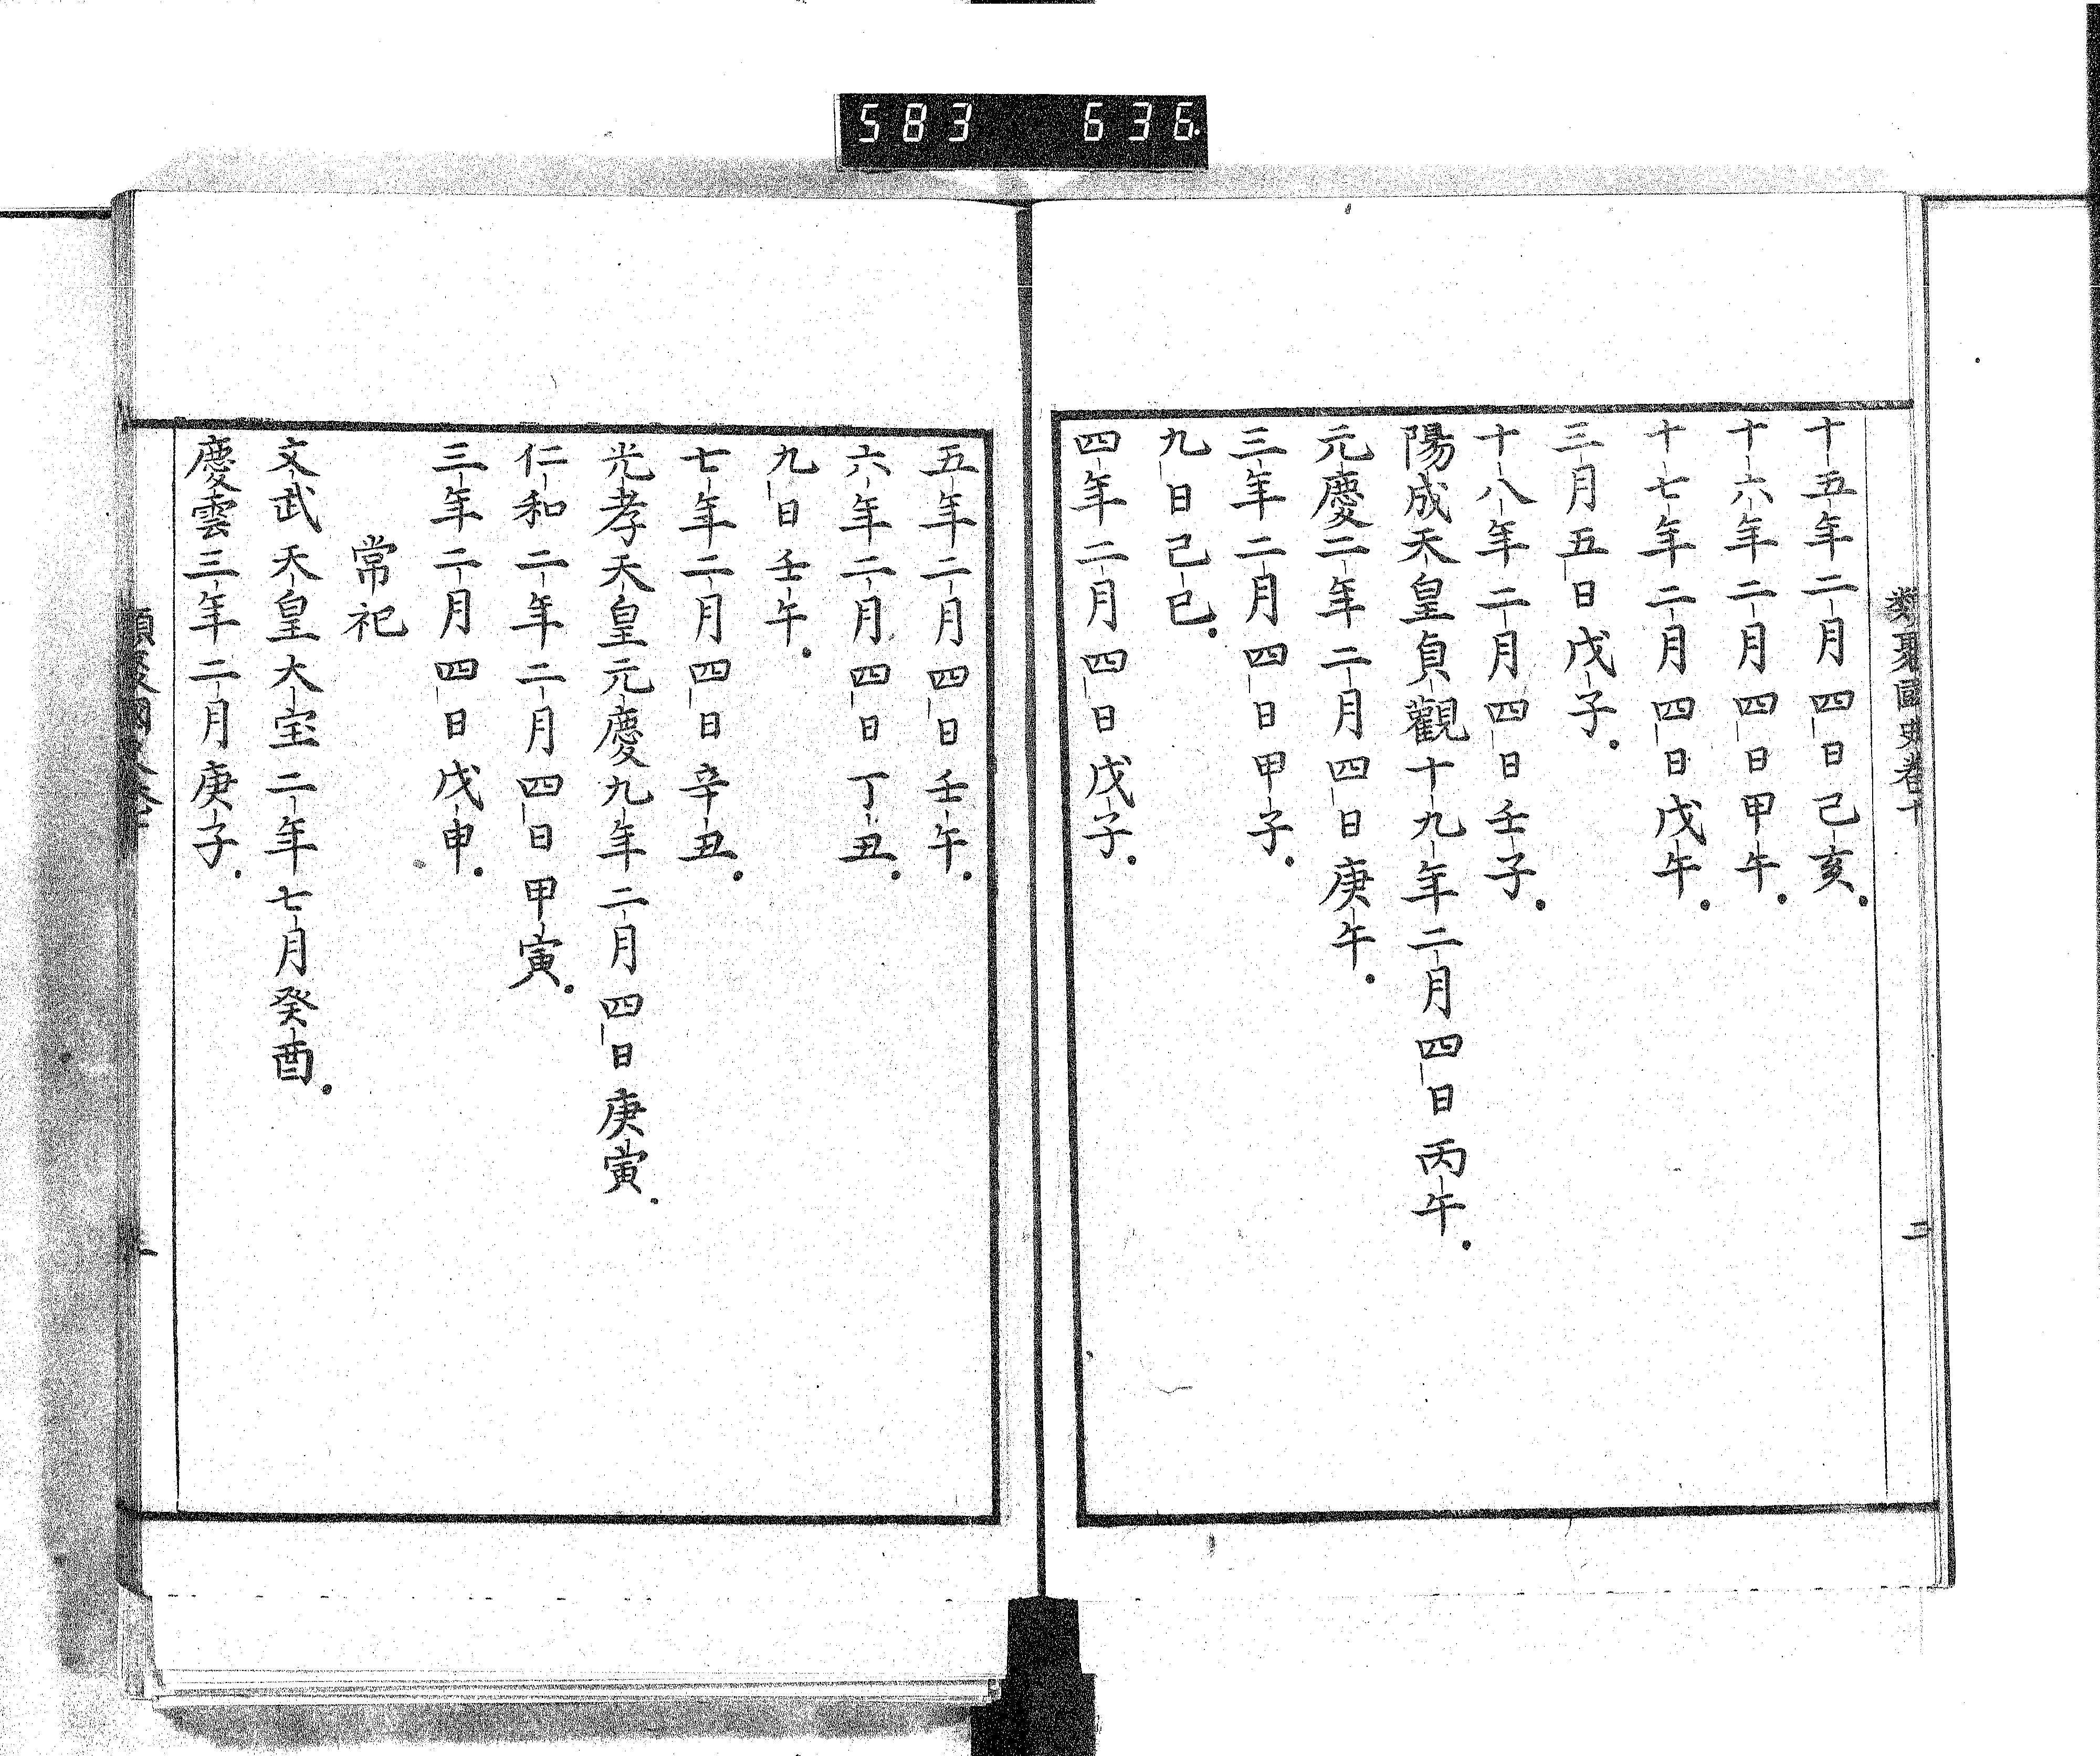 583 636.
類聚國史卷十
二
十五年二月四日己亥.
十六年二月四日甲午.
十七年二月四日戊午.
三月五日戊子.
十八年二月四日壬子.
陽成天皇貞觀十九年二月四日丙午.
元慶二年二月四日庚午.
三年二月四日甲子.
九日己巳.
四年二月四日戊子.
五年二月四日壬午.
六年二月四日丁丑.
九日壬午.
七年二月四日辛丑.
光孝天皇元慶九年二月四日庚寅.
仁和二年二月四日甲寅.
三年二月四日戊申.
常祀
文武天皇大宝二年七月癸酉.
慶雲三年二月庚子.